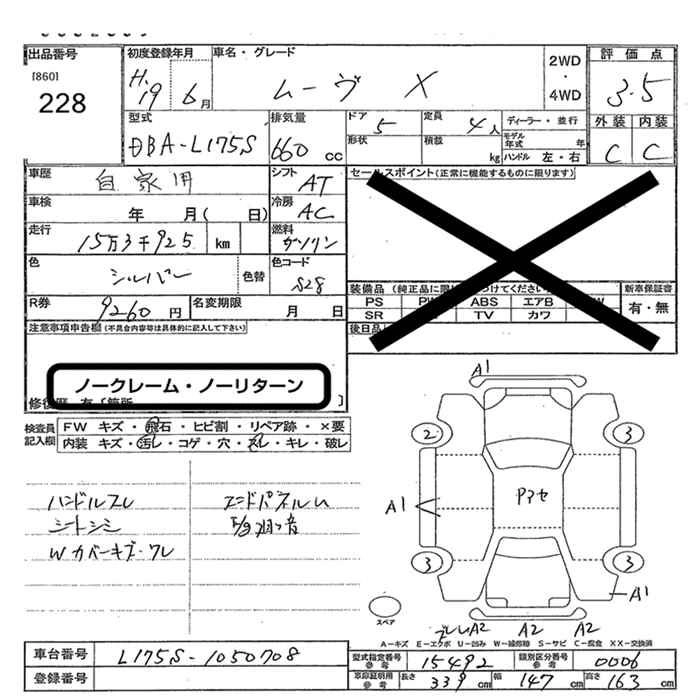 出品番号
[860]
228
初度登録年月
H.19 6月
車名・グレード
ムーヴ X
2WD
・
4WD
評価点
3.5
外装 内装
C C
型式
DBA-L175S
排気量
660 cc
ドア 5
形状
定員 4人
積載 kg
ディーラー・並行
モデル年式 年
ハンドル 左・右
車歴
自家用
シフト
AT
車検
年 月( 日)
冷房
AC
走行
15万3千925 km
燃料
ガソリン
色
シルバー
色替
色コード
S28
R券
9260円
名変期限
月 日
セールスポイント(正常に機能するものに限ります)
装備品
PS ABS エアB
SR TV カワ
新車保証書
有・無
後日品
注意事項申告欄(不具合内容等は具体的に記入して下さい)
ノークレーム・ノーリターン
検査員記入欄
FW キズ・飛石・ヒビ割・リペア跡・×要
内装 キズ・汚レ・コゲ・穴・スレ・キレ・破レ
ハンドルスレ
シートシミ
Wカバーキズ・ワレ
エンドパネルU
A1
2
3
A1
Pアセ
3
3
A1
スペア
A2 A2 A2
A-キズ E-エクボ U-凹み W-線修粉 S-サビ C-腐食 XX-交換済
車台番号
L175S-1050708
登録番号
型式指定番号 参考
15492
類別区分番号 参考
0006
車印証明用 参考
長さ 339 cm
幅 147 cm
高さ 163 cm